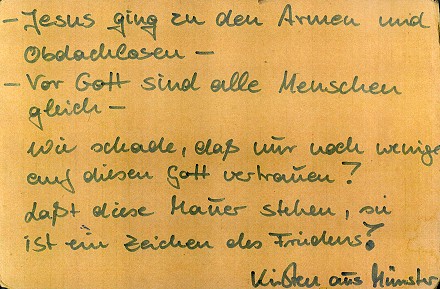 - Jesus ging zu den Armen und
Obdachlosen -
- Vor Gott sind alle Menschen
gleich -
Wie schade, daß nur noch wenige
auf diesen Gott vertrauen?
Laßt diese Mauer stehen, sie
ist ein Zeichen des Friedens?
Kirsten aus Münster